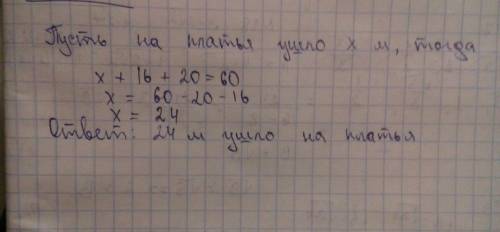 Пусть на платья ушло x м, тогда
x + 16 + 20 = 60
x = 60 - 20 - 16
x = 24
Ответ: 24 м ушло на платья